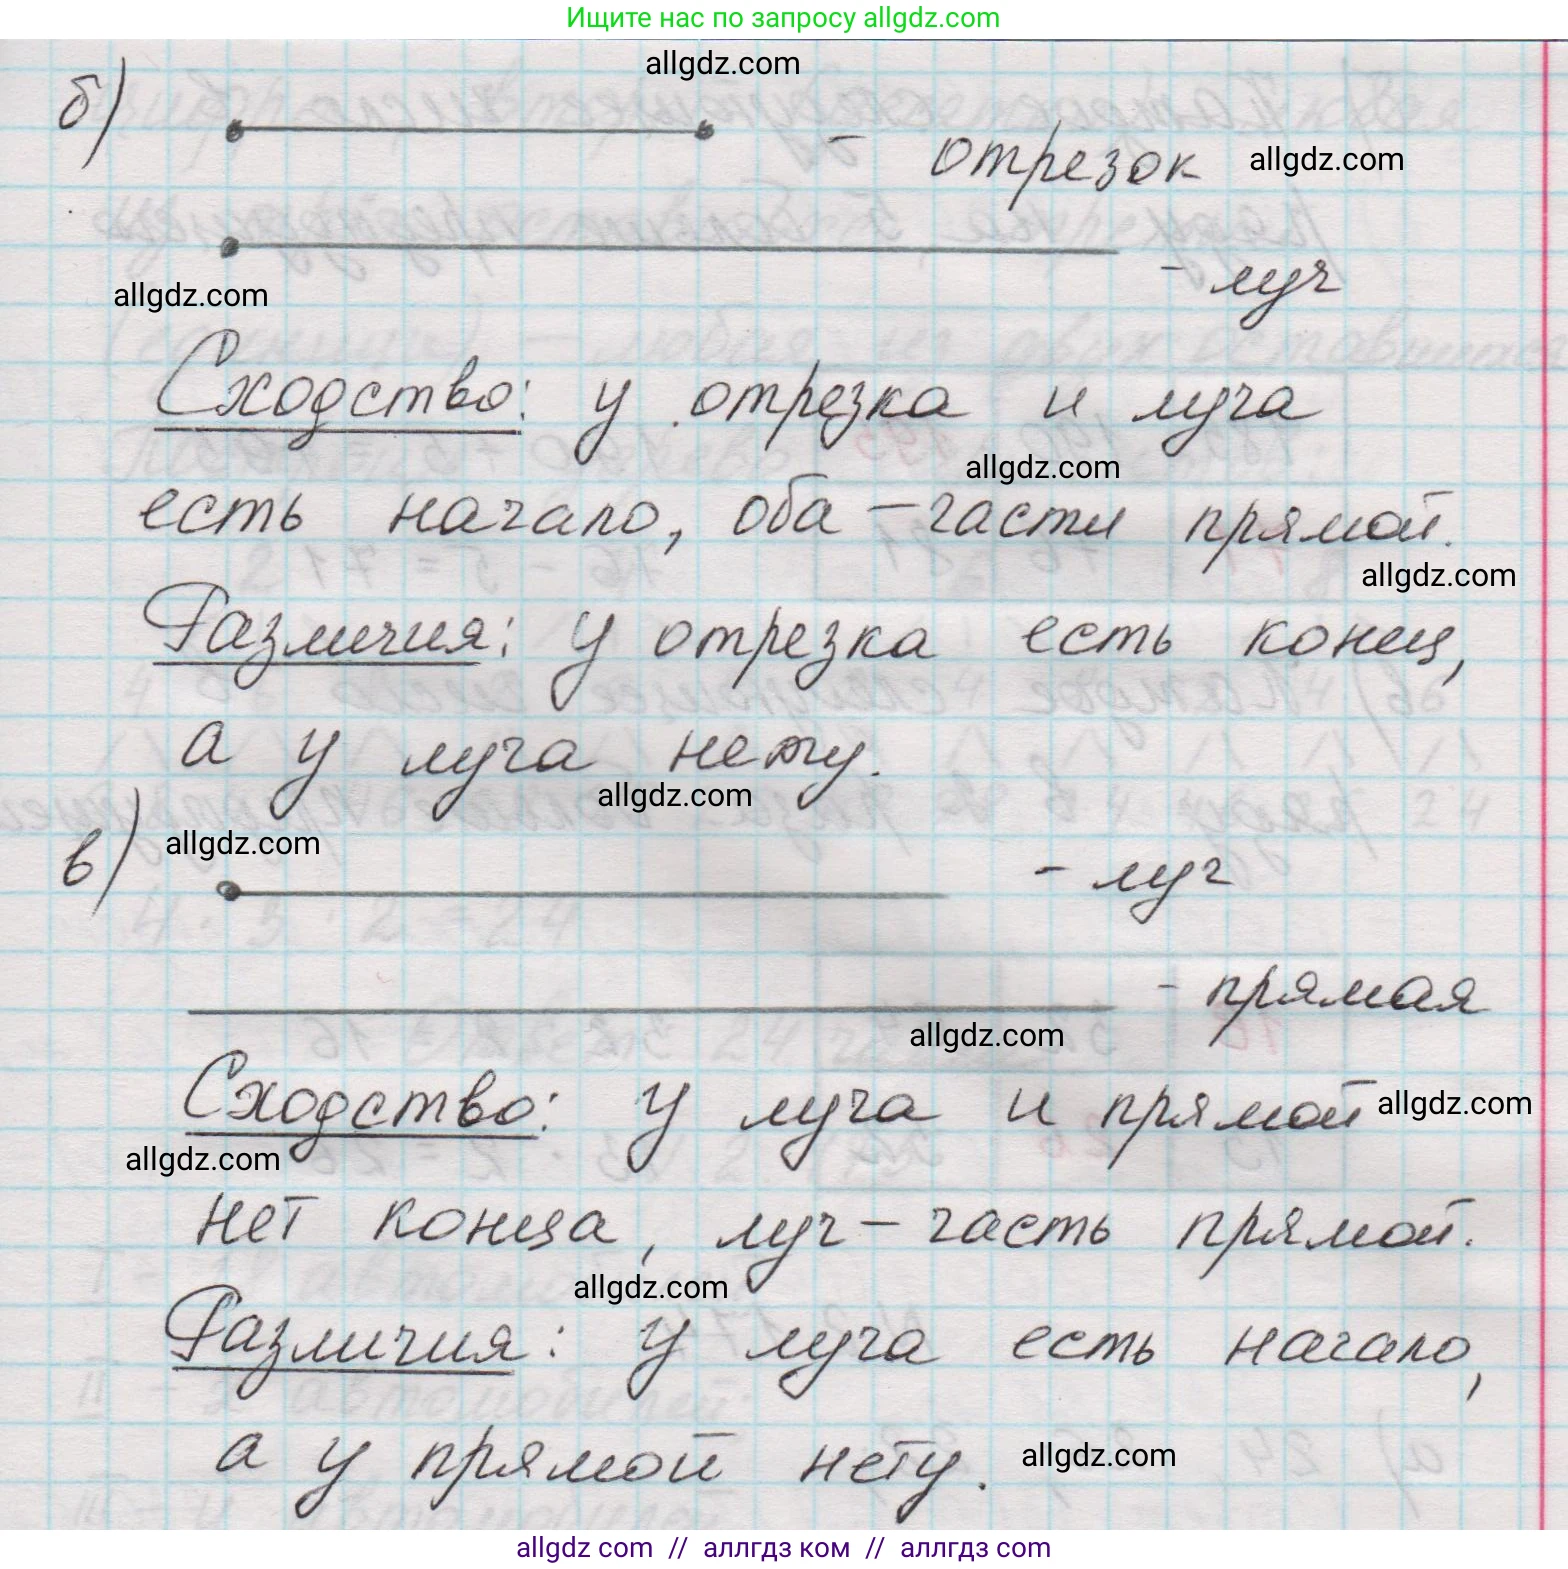 Ищите нас по запросу allgdz.com
allgdz.com
б)
- отрезок allgdz.com
- луч
allgdz.com
Сходство: у отрезка и луча
allgdz.com
есть начало, оба - части прямой.
allgdz.com
Различия: у отрезка есть конец,
а у луча нету.
allgdz.com
в) allgdz.com
- луч
- прямая
allgdz.com
Сходство: у луча и прямой allgdz.com
allgdz.com
нет конца, луч - часть прямой.
allgdz.com
Различия: у луча есть начало,
а у прямой нету. allgdz.com
allgdz com // аллгдз ком // аллгдз com